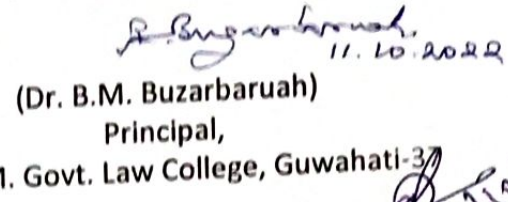 11.10.2022
(Dr. B.M. Buzarbaruah)
Principal,
1. Govt. Law College, Guwahati-3